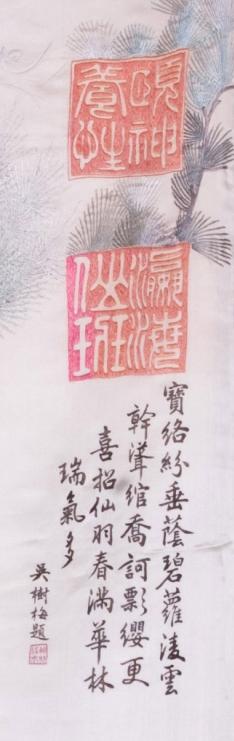 頤神
養性
瀛海
仙班
寶絡紛垂蔭碧蘿淩雲
幹聳綰喬訶飄纓更
喜招仙羽春滿華林
瑞氣多
吳樹梅題